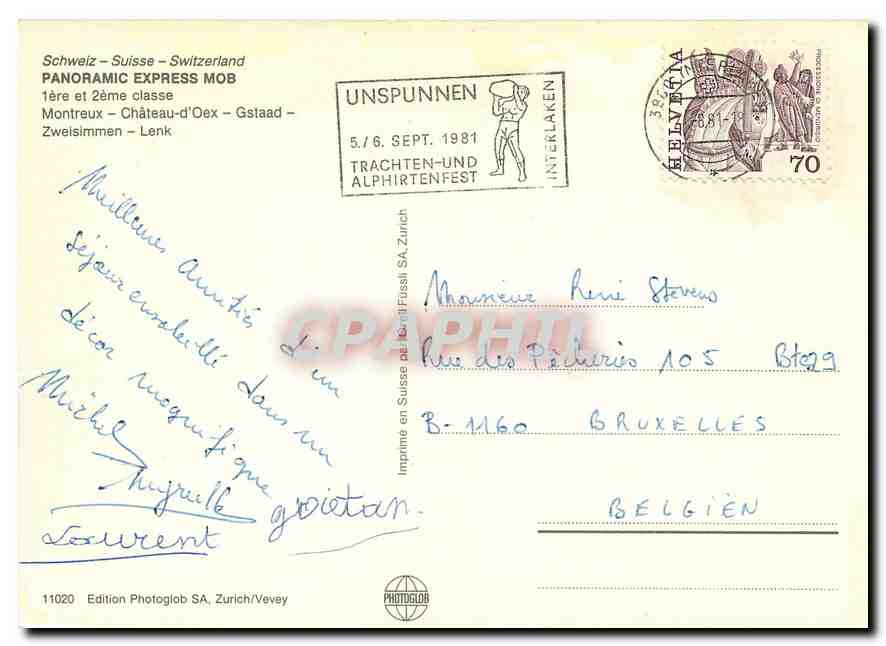 Schweiz – Suisse – Switzerland
PANORAMIC EXPRESS MOB
1ère et 2ème classe
Montreux – Château-d'Oex – Gstaad –
Zweisimmen – Lenk
UNSPUNNEN
5./6. SEPT. 1981
TRACHTEN-UND
ALPHIRTENFEST
INTERLAKEN
HELVETIA
PROCESSIONE DI MENDRISIO
70
Meilleures Amitiés d'un
séjour ensoleillé dans un
décor magnifique
Michel
Laurent
Imprimé en Suisse par Orell Füssli SA, Zurich
CPAPHIL
Monsieur René Stevens
Rue des Pêcheries 105 Bte29
B-1160 BRUXELLES
BELGIËN
11020 Edition Photoglob SA, Zurich/Vevey
PHOTOGLOB